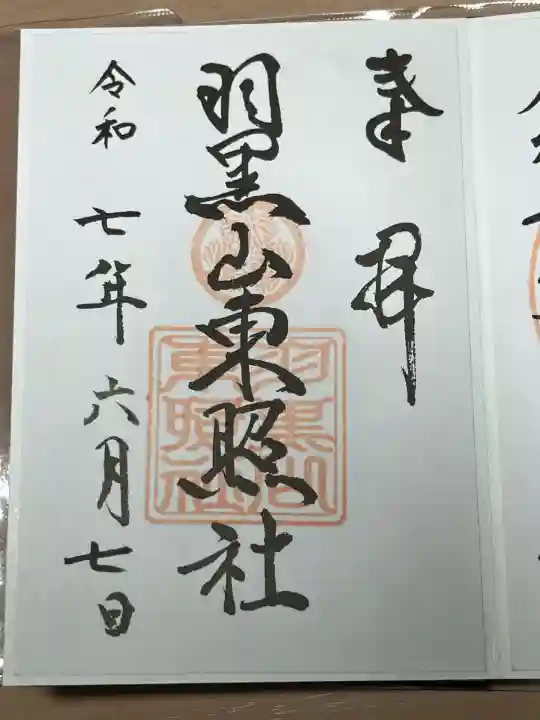 奉拝
羽黒山東照社
羽黒山
東照社
令和 七年 六月 七日